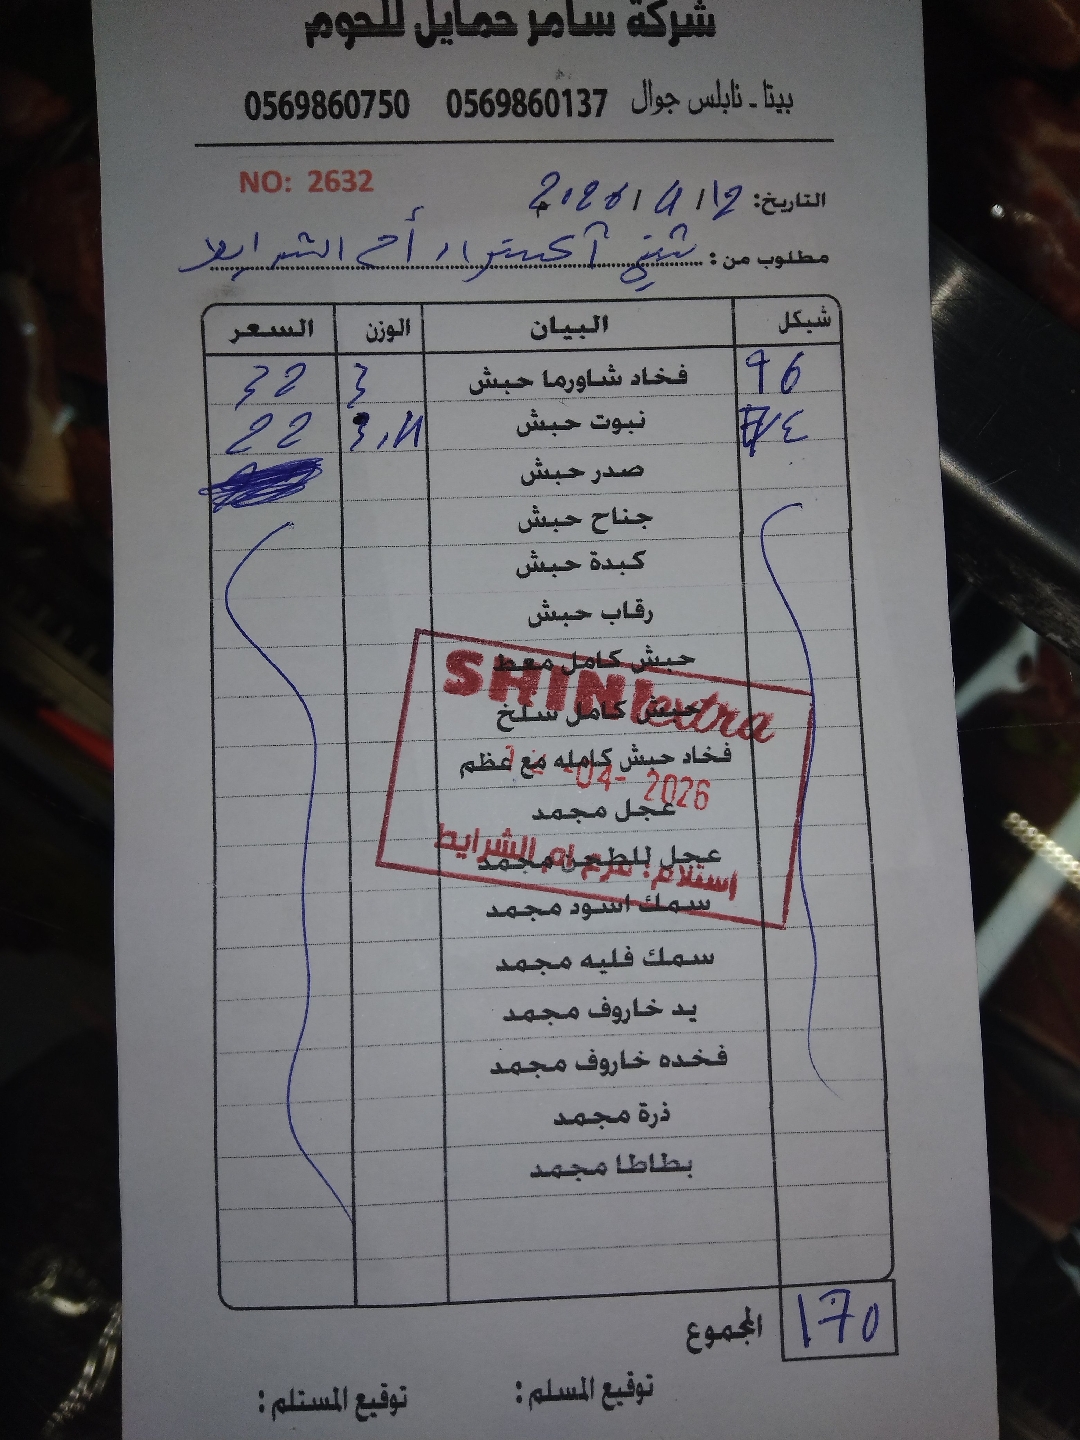 شركة سامر حمايل للحوم
بيتا - نابلس جوال 0569860137 0569860750
NO: 2632
التاريخ: 12 / 4 / 2026
مطلوب من: شيني اكسترا، ام الشرايط
شيكل البيان الوزن السعر
96 فخاد شاورما حبش 3 32
نبوت حبش 22
صدر حبش
جناح حبش
كبدة حبش
رقاب حبش
حبش كامل معط
حبش كامل سلخ
فخاد حبش كامله مع عظم
عجل مجمد
عجل للطحن مجمد
سمك اسود مجمد
سمك فليه مجمد
يد خاروف مجمد
فخده خاروف مجمد
ذرة مجمد
بطاطا مجمد
SHINI extra
-04- 2026
استلام: فرع ام الشرايط
المجموع 170
توقيع المسلم :
توقيع المستلم :